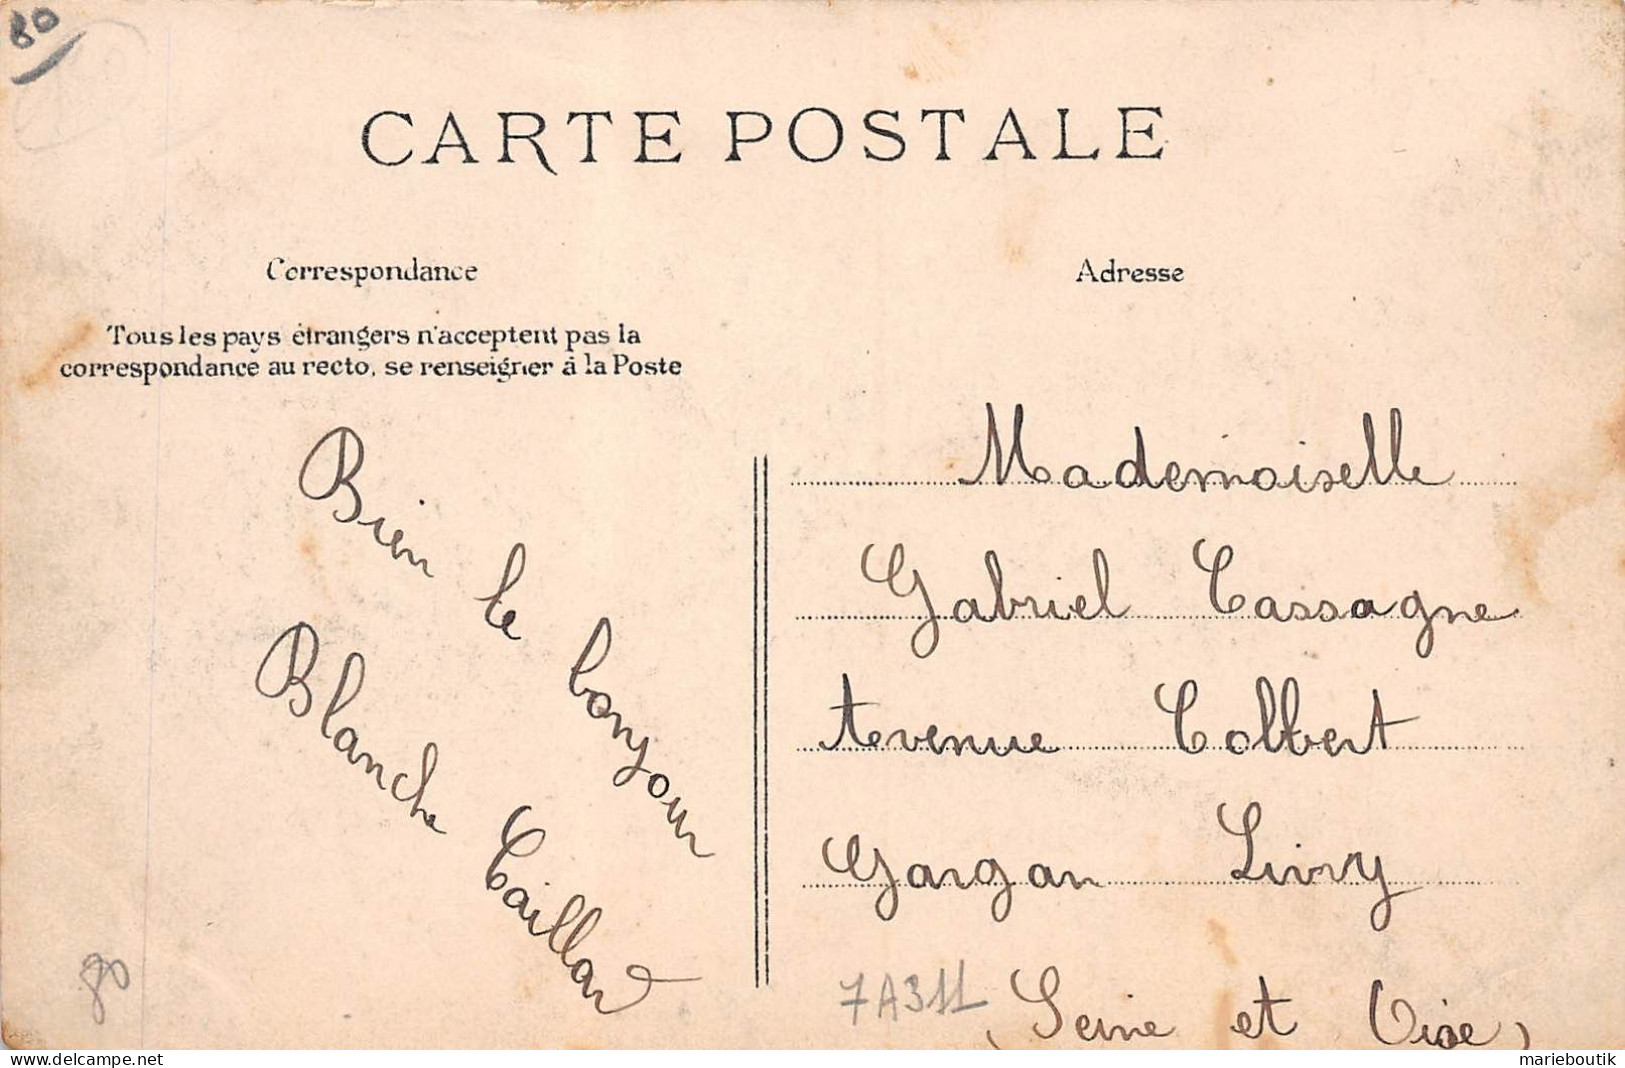 80
CARTE POSTALE
Correspondance
Tous les pays étrangers n'acceptent pas la
correspondance au recto, se renseigner à la Poste
Bien le bonjour
Blanche Caillard
80
Adresse
Mademoiselle
Gabriel Cassagne
Avenue Colbert
Gargan Livry
(Seine et Oise)
7A311
delcampe.net
marieboutik